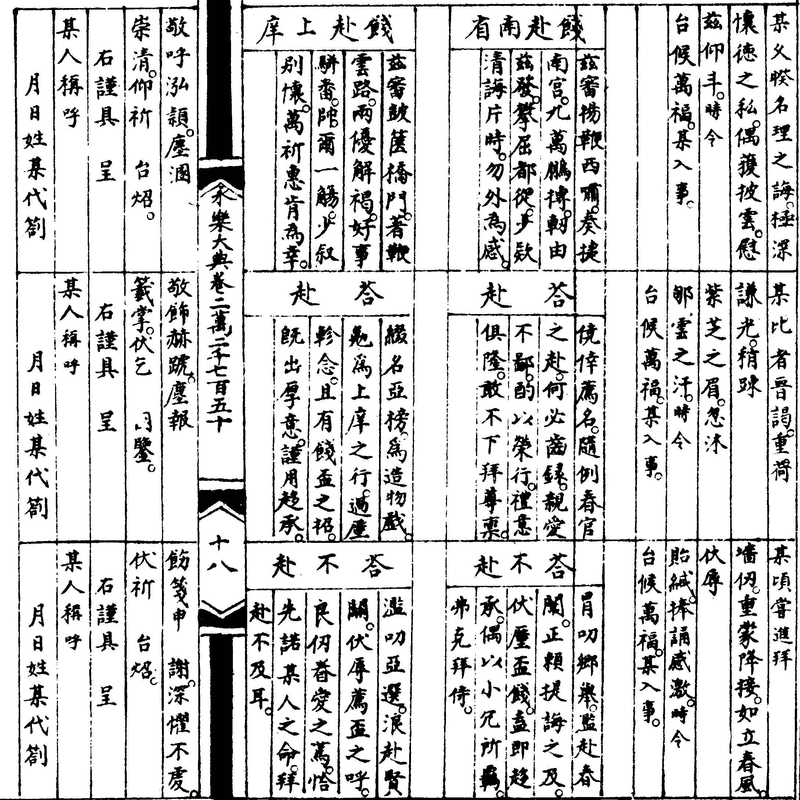 某父暌名理之誨。極深
懷德之私。偶獲披雲。慰
茲仰斗。時令
台候萬福。某入事。
某比者晉謁。重荷
謙光。稍踈
紫芝之眉。忽沐
郇雲之汗。時令
台候萬福。某入事。
某頃嘗進拜
墻仞。重蒙降接。如立春風。
伏辱
貽緘。捧誦感激。時令
台候萬福。某入事。
餞赴南省
茲審揚鞭西嘯。奏捷
南宮。九萬鵬摶。軔由
茲發。攀屈都從。少欵
清誨片時。勿外為感。
荅赴
僥倖薦名。隨例春官
之赴。何必齒錄。親愛
不鄙。酌以榮行。禮意
俱隆。敢不下拜尊稟。
荅不赴
冒叨鄉舉。濫赴春
闈。正賴提誨之及。
伏蒙盃餞。益即趍
承。偶以小冗所羈。
弗克拜侍。
餞赴上庠
茲審鼓篋橋門。著鞭
雲路。兩優解褐。好事
駢臻。郎爾一觴。少叙
别懷。萬祈惠肯為幸。
荅赴
綴名亞榜。為造物戲。
勉為上庠之行。過蒙
軫念。且有餞盃之招。
既出厚意。謹用趍承。
荅不赴
濫叨亞選。浪赴賢
關。伏辱薦盃之呼。
良仞眷愛之篤。恰
先諾某人之命。拜
赴不及耳。
永樂大典卷二萬二千七百五十
十八
敬呼泓頴。塵溷
崇清。仰祈 台炤。
右謹具 呈
某人稱呼
月日姓某代劄
敬飾赫蹏。塵報
籤掌。伏乞 冏鑒。
右謹具 呈
某人稱呼
月日姓某代劄
飭箋申 謝。深懼不虔。
伏祈 台炤。
右謹具 呈
某人稱呼
月日姓某代劄